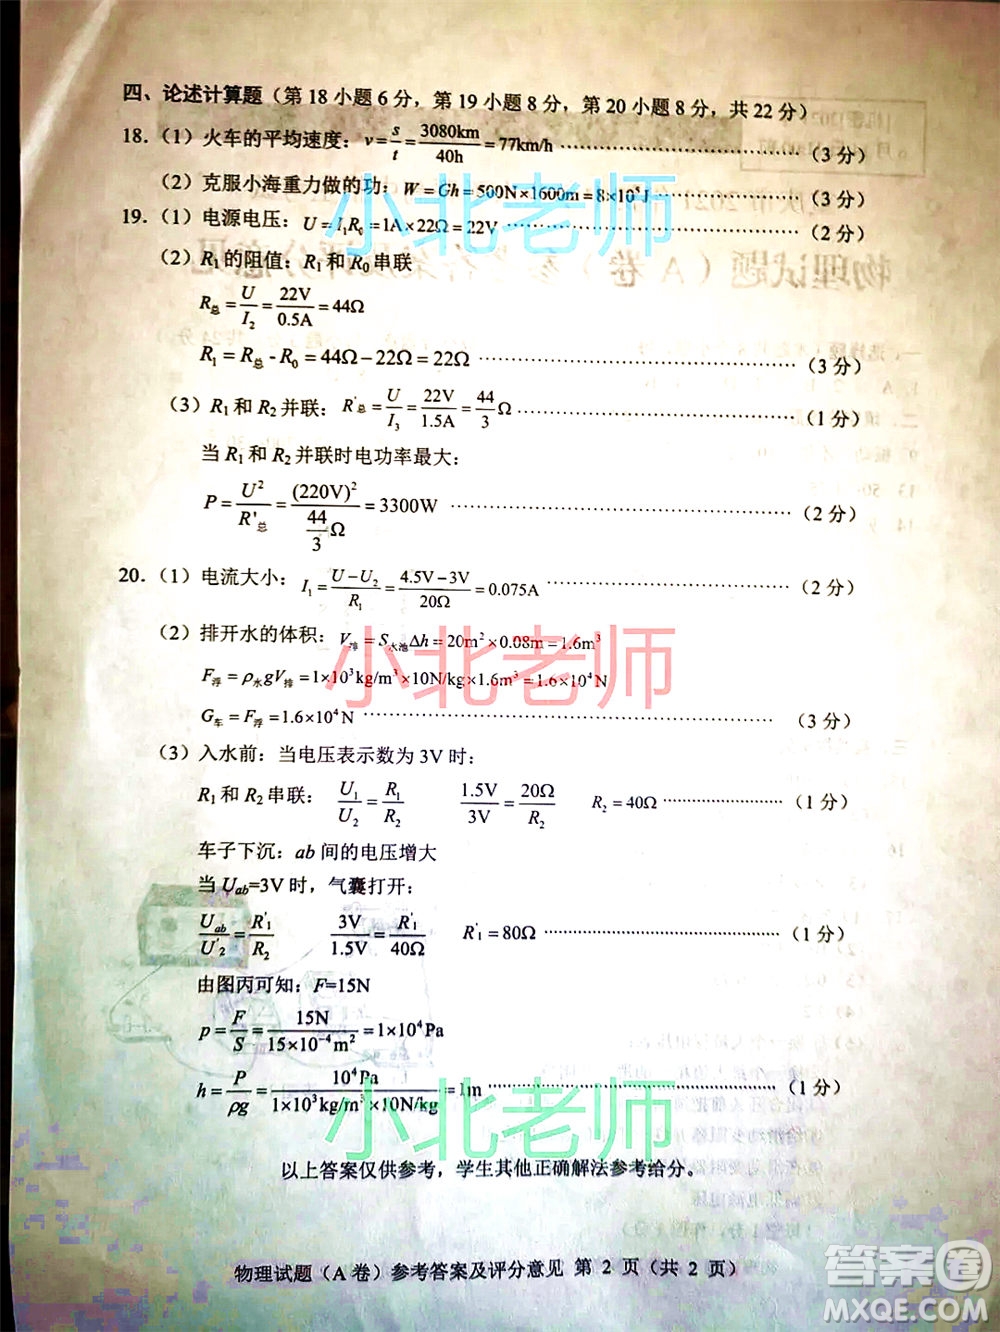 四、论述计算题（第 18 小题 6 分，第 19 小题 8 分，第 20 小题 8 分，共 22 分）
18.（1）火车的平均速度：v=s/t=3080km/40h=77km/h ……………………（3 分）
（2）克服小海重力做的功：W=Gh=500N×1600m=8×10⁵J ……………………（3 分）
19.（1）电源电压：U=I₁R₀=1A×22Ω=22V ……………………（2 分）
（2）R₁的阻值：R₁和 R₀串联
R总=U/I₂=22V/0.5A=44Ω
R₁=R总-R₀=44Ω-22Ω=22Ω ……………………（3 分）
（3）R₁和 R₂并联：R'总=U/I₃=22V/1.5A=44/3Ω ……………………（1 分）
当 R₁和 R₂并联时电功率最大：
P=U²/R'总=(220V)²/(44/3Ω)=3300W ……………………（2 分）
20.（1）电流大小：I₁=(U-U₂)/R₁=(4.5V-3V)/20Ω=0.075A ……………………（2 分）
（2）排开水的体积：V排=S水池Δh=20m²×0.08m=1.6m³
F浮=ρ水gV排=1×10³kg/m³×10N/kg×1.6m³=1.6×10⁴N
G车=F浮=1.6×10⁴N ……………………（3 分）
（3）入水前：当电压表示数为 3V 时：
R₁和 R₂串联： U₁/U₂=R₁/R₂ 1.5V/3V=20Ω/R₂ R₂=40Ω ……………………（1 分）
车子下沉：ab 间的电压增大
当 Uab=3V 时，气囊打开：
Uab/U'₂=R'₁/R₂ 3V/1.5V=R'₁/40Ω R'₁=80Ω ……………………（1 分）
由图丙可知：F=15N
p=F/S=15N/(15×10⁻⁴m²)=1×10⁴Pa
h=P/ρg=10⁴Pa/(1×10³kg/m³×10N/kg)=1m ……………………（1 分）
以上答案仅供参考，学生其他正确解法参考给分。
物理试题（A 卷）参考答案及评分意见 第 2 页（共 2 页）
小北老师
小北老师
小北老师
答案圈
MXQE.COM